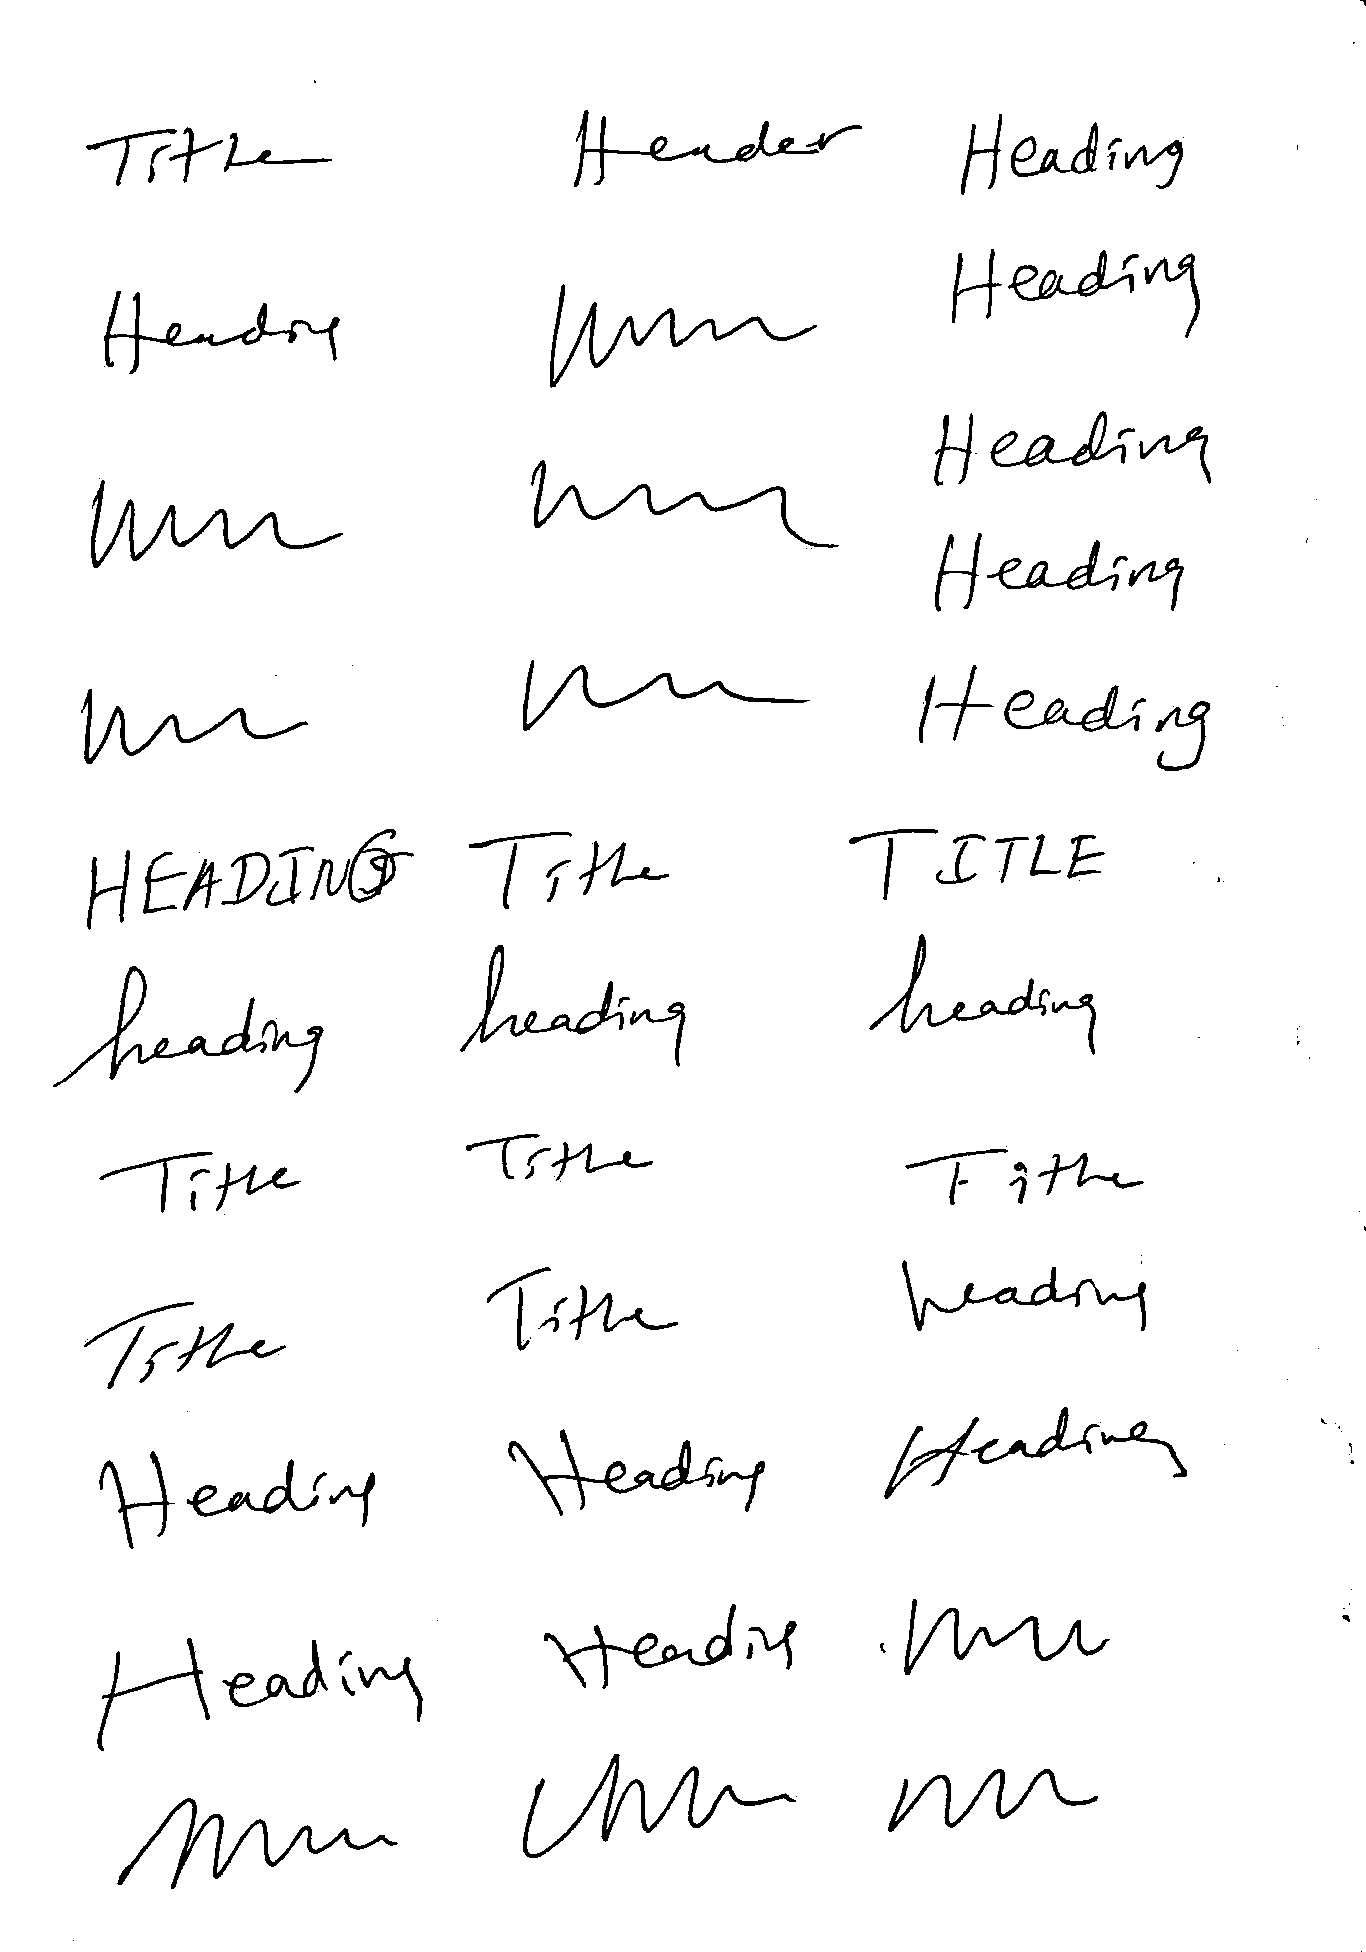 Title Header Heading
Heading
Heading
Heading
Heading
Heading
HEADING Title TITLE
heading heading heading
Title Title Title
Title Title heading
Heading Heading Heading
Heading Heading